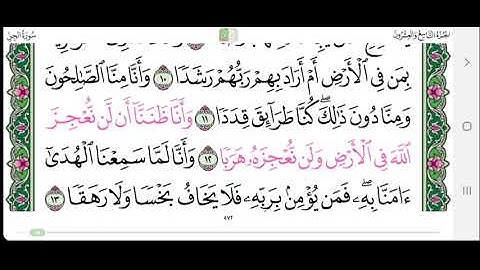 سورة الجن
الجزء التاسع والعشرون
بِمَن فِي ٱلْأَرْضِ أَمْ أَرَادَ بِهِمْ رَبُّهُمْ رَشَدٗا ١٠ وَأَنَّا مِنَّا ٱلصَّٰلِحُونَ
وَمِنَّا دُونَ ذَٰلِكَۖ كُنَّا طَرَآئِقَ قِدَدٗا ١١ وَأَنَّا ظَنَنَّآ أَن لَّن نُّعْجِزَ
ٱللَّهَ فِي ٱلْأَرْضِ وَلَن نُّعْجِزَهُۥ هَرَبٗا ١٢ وَأَنَّا لَمَّا سَمِعْنَا ٱلْهُدَىٰٓ
ءَامَنَّا بِهِۦۖ فَمَن يُؤْمِنۢ بِرَبِّهِۦ فَلَا يَخَافُ بَخْسٗا وَلَا رَهَقٗا ١٣